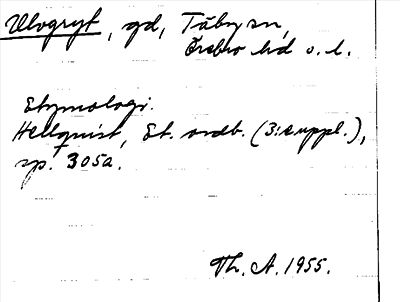 Ulvgryt, gd, Täby sn,
Örebro hd o. l.
Etymologi.
Hellquist, Et. ordb. (3:e uppl.),
sp. 305a.
Th. A. 1955.